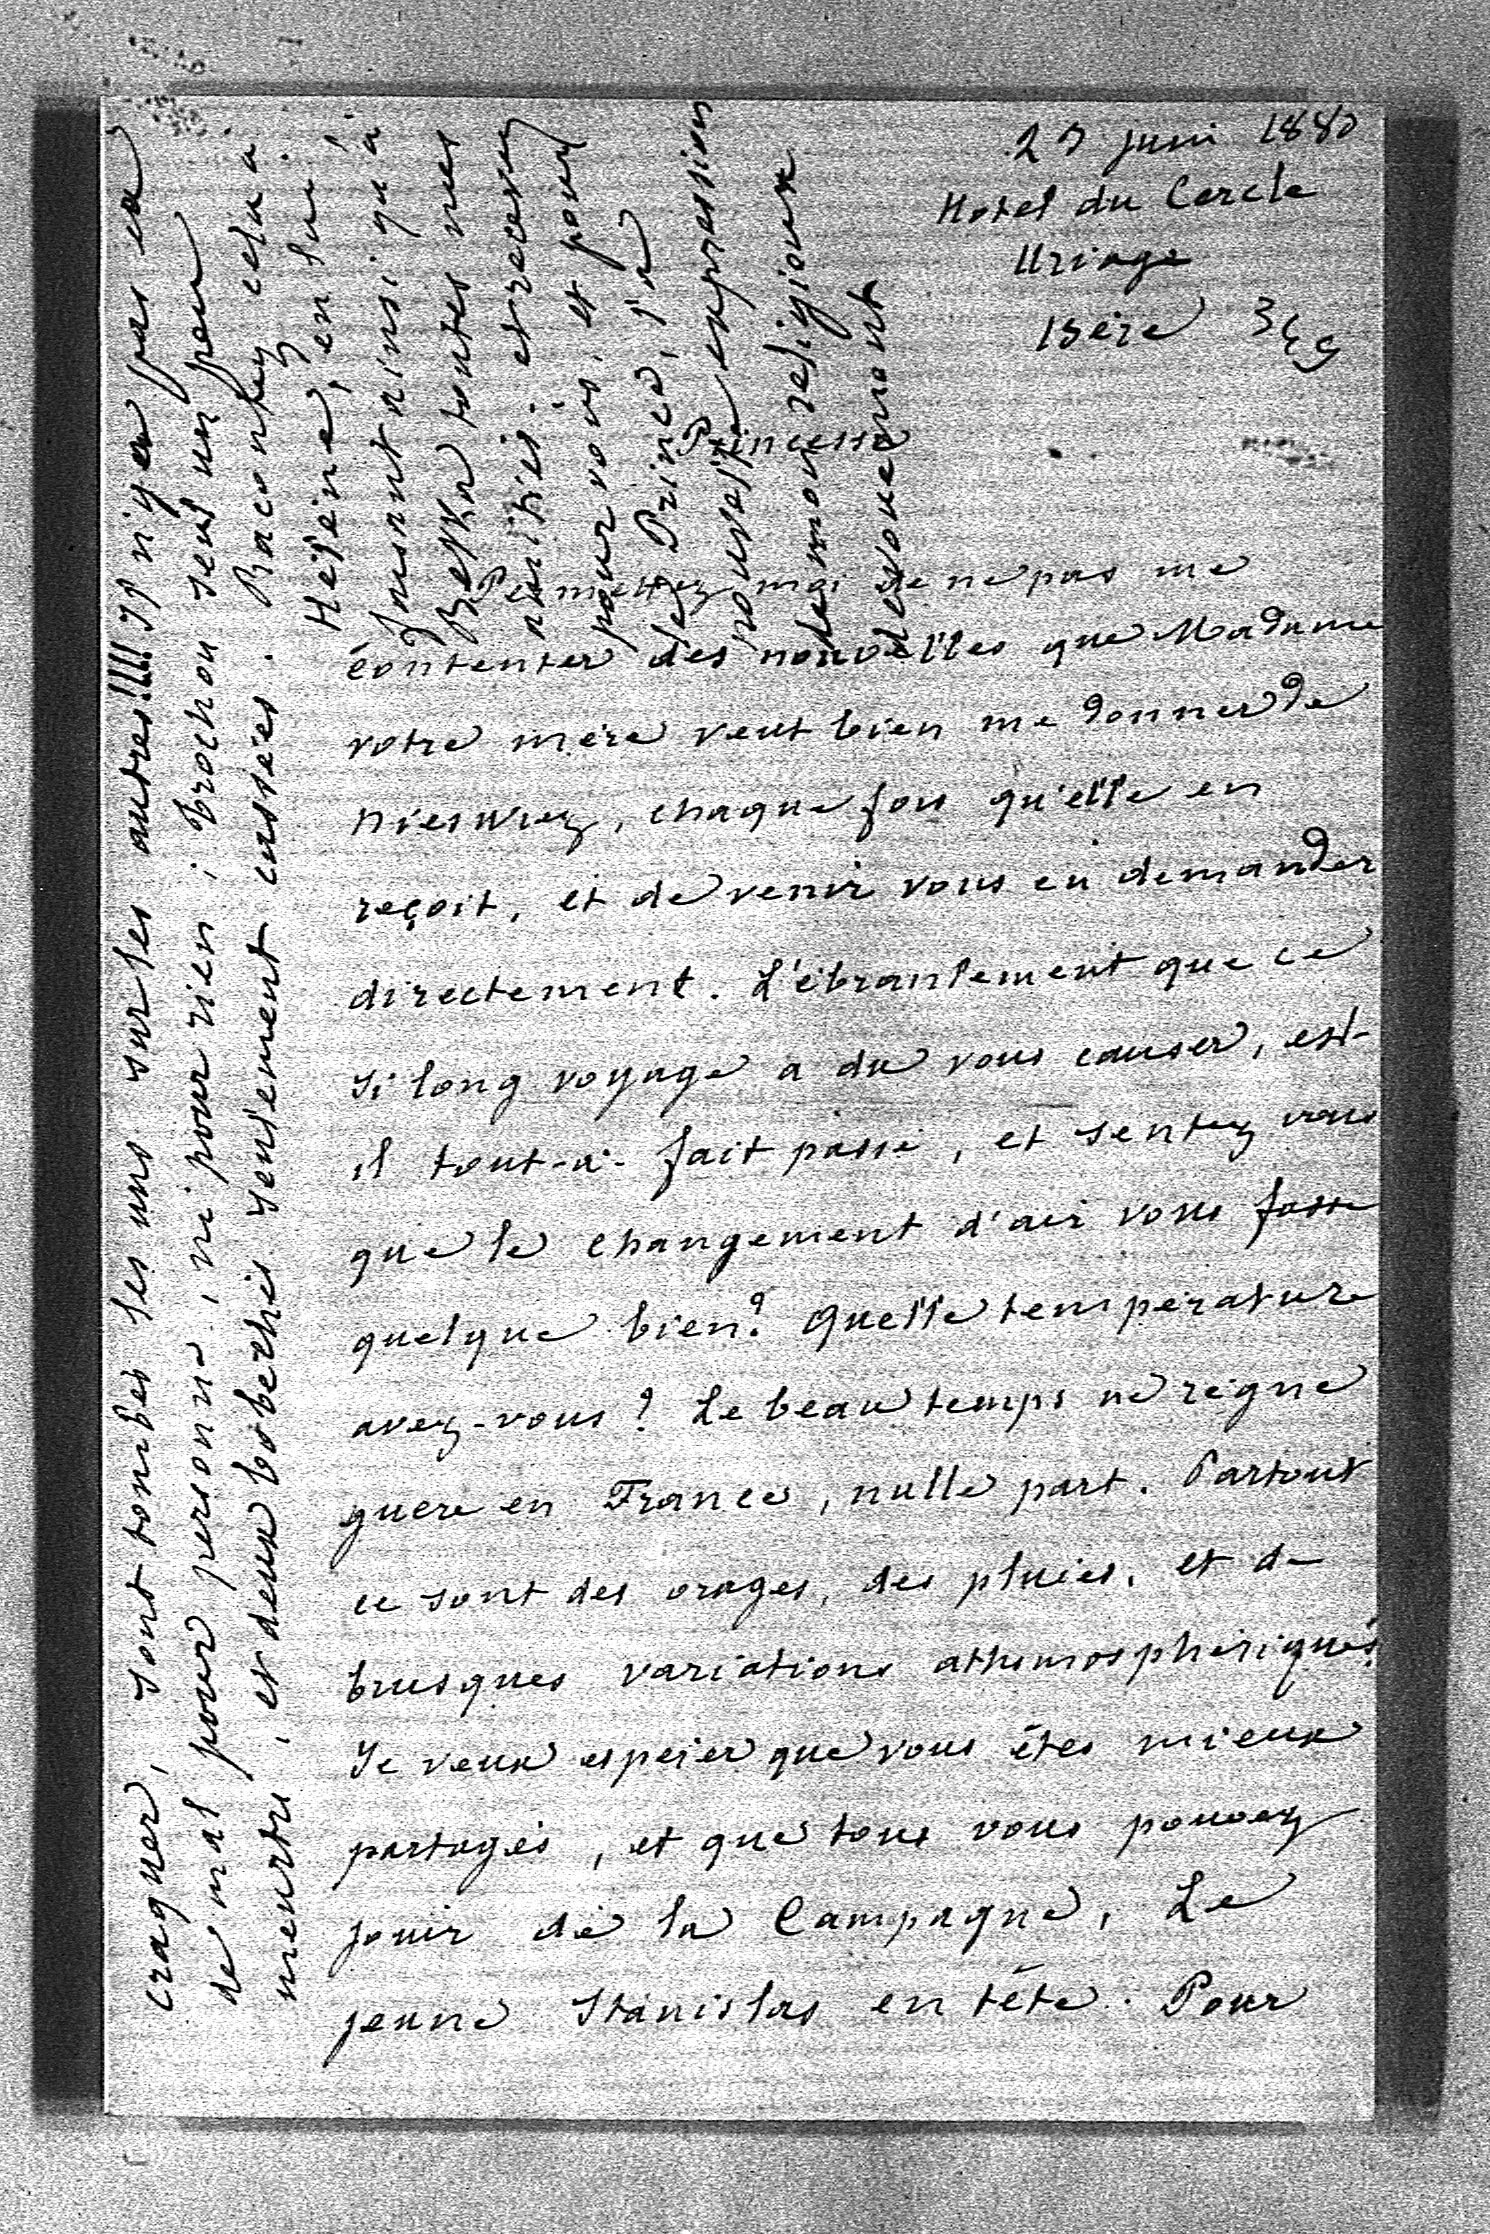 27 juin 1880
Hotel du Cercle
Uriage
Isère
Princesse
Permettez moi de ne pas me
contenter des nouvelles que Madame
votre mère veut bien me donner de
Nieswiez, chaque fois qu'elle en
reçoit, et de venir vous en demander
directement. L'ébranlement que ce
si long voyage a du vous causer, est-
il tout-à-fait passé, et sentez vous
que le changement d'air vous fasse
quelque bien? Quelle température
avez-vous? Le beau temps ne règne
guere en France, nulle part. Partout
ce sont des orages, des pluies, et de
brusques variations athmosphériques.
Je veux espérer que vous êtes mieux
partagés, et que tous vous pouvez
jouir de la Campagne, Le
jeune Stanislas en tête. Pour
craquer, sont tombés les uns sur les autres!!!! Il n'y a pas eu
de mal pour personne, ni pour rien; Brochou seul un peu
meurtri, et deux bobeches seulement cassées. Racontez cela à
Hélène, en lui
faisant ainsi qu'à
Betka toutes mes
amitiés. et recevez
pour vous, et pour
le Prince, l'
nouvelle expression
de mon religieux
devouement